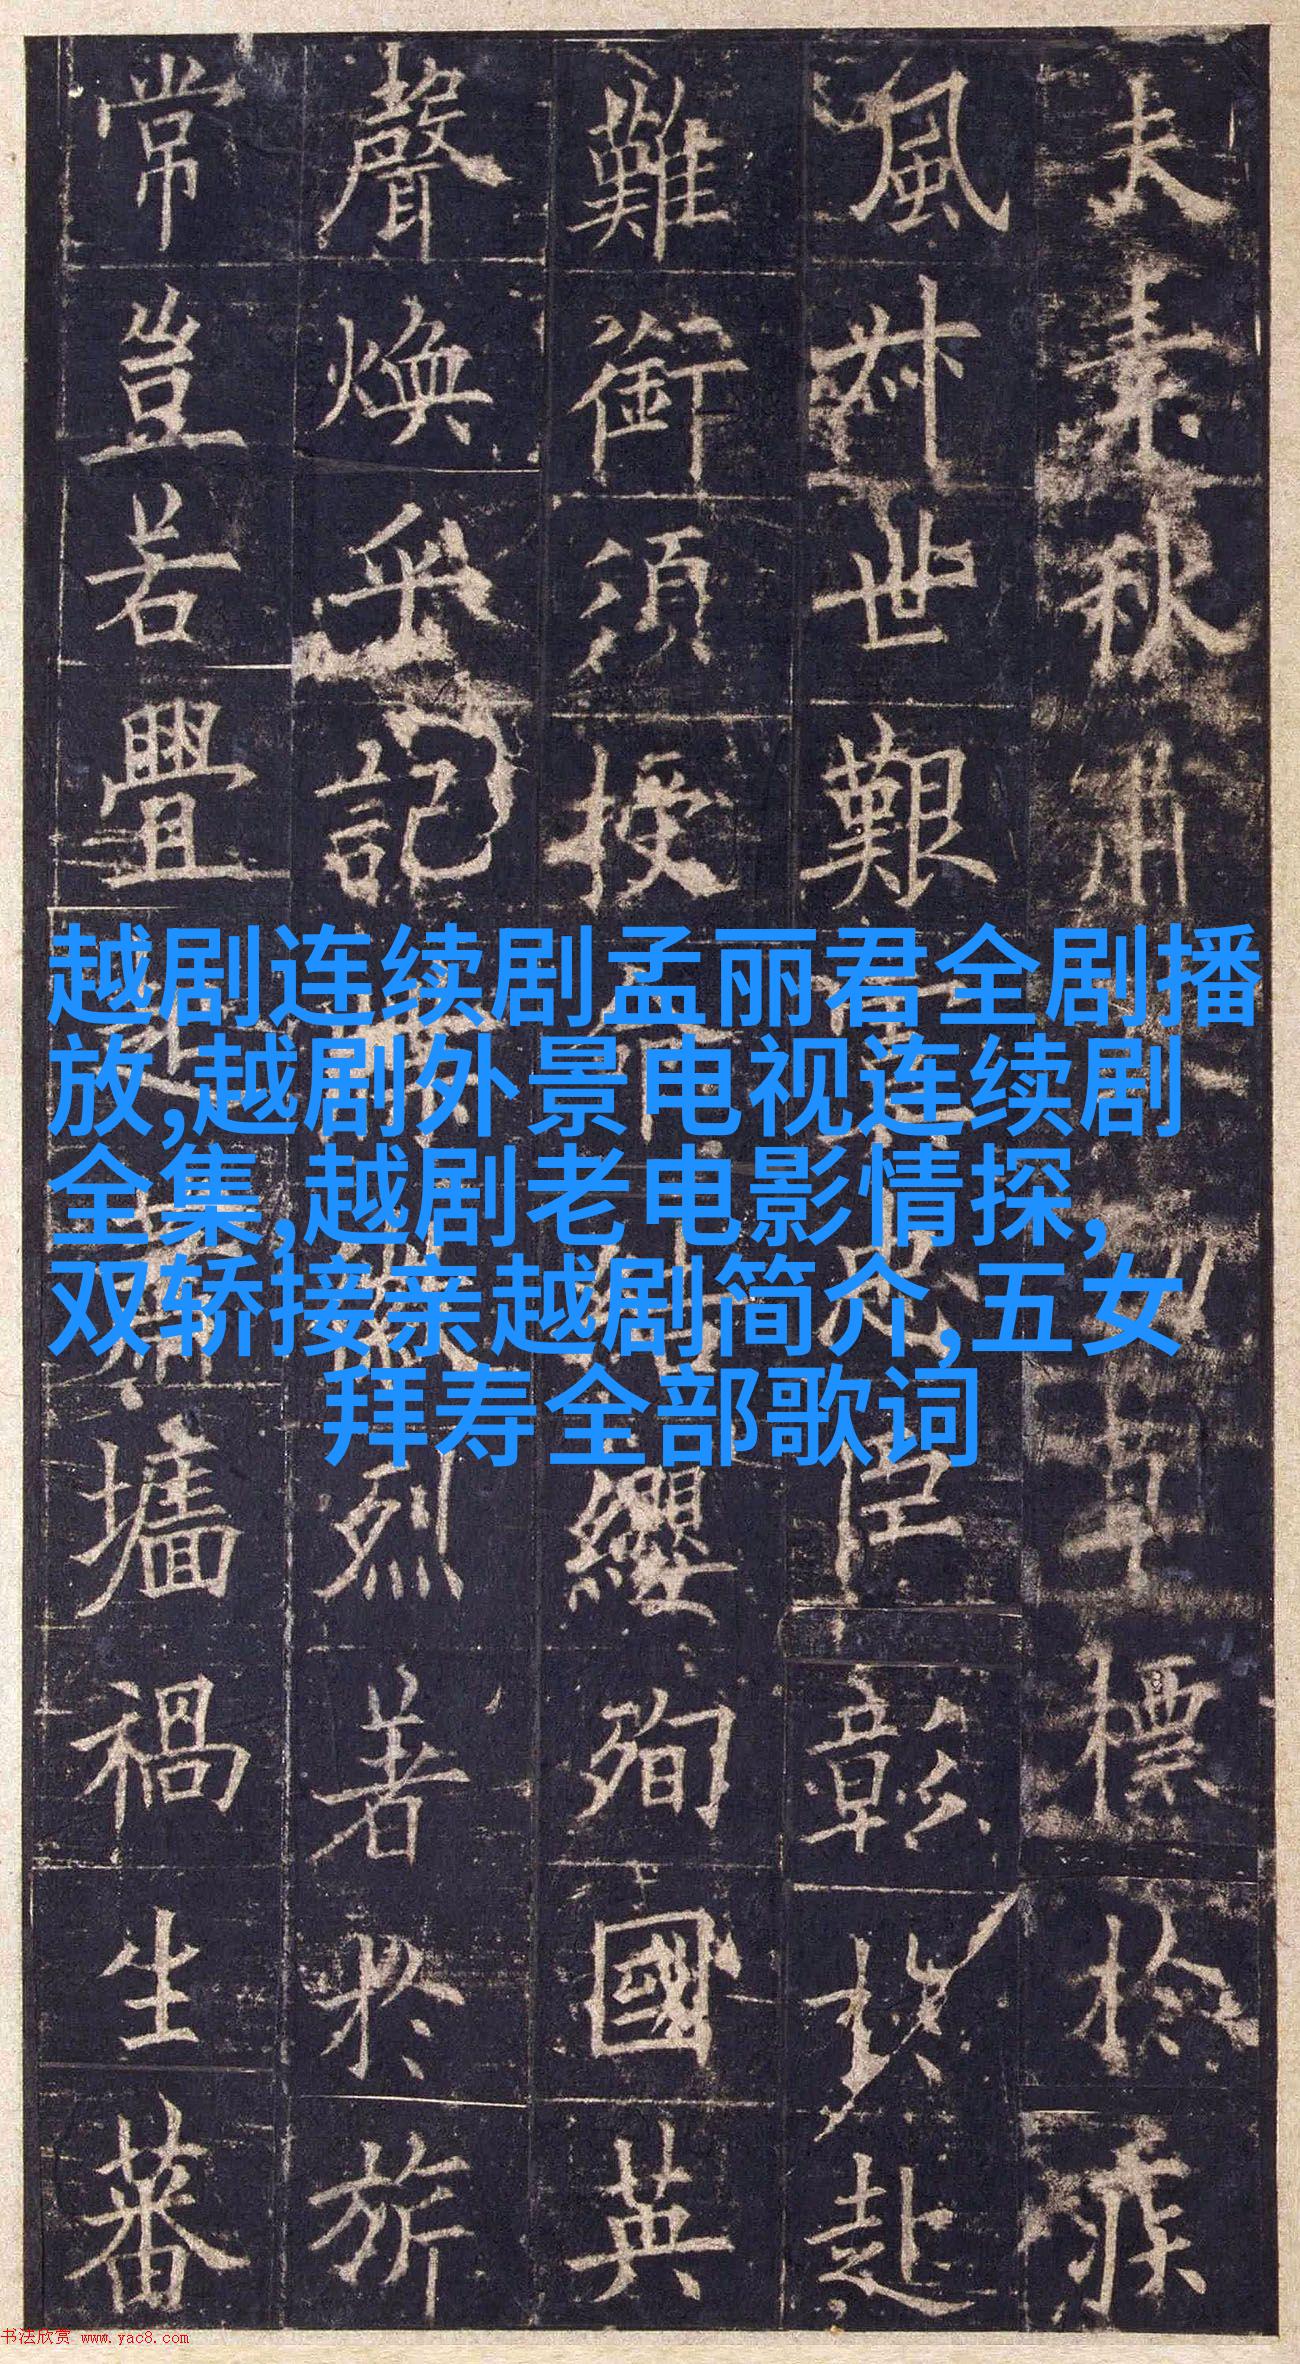 夫素秋肅草標於疾
風叔世艱忠臣彰於赴
難銜須授纓殉國英
聲煥乎記烈著於旂
常豈若釁墻禍生蕃
越剧连续剧孟丽君全剧播
放,越剧外景电视连续剧
全集,越剧老电影情探,
双轿接亲越剧简介,五女
拜寿全部歌词
书法欣赏 www.yac8.com